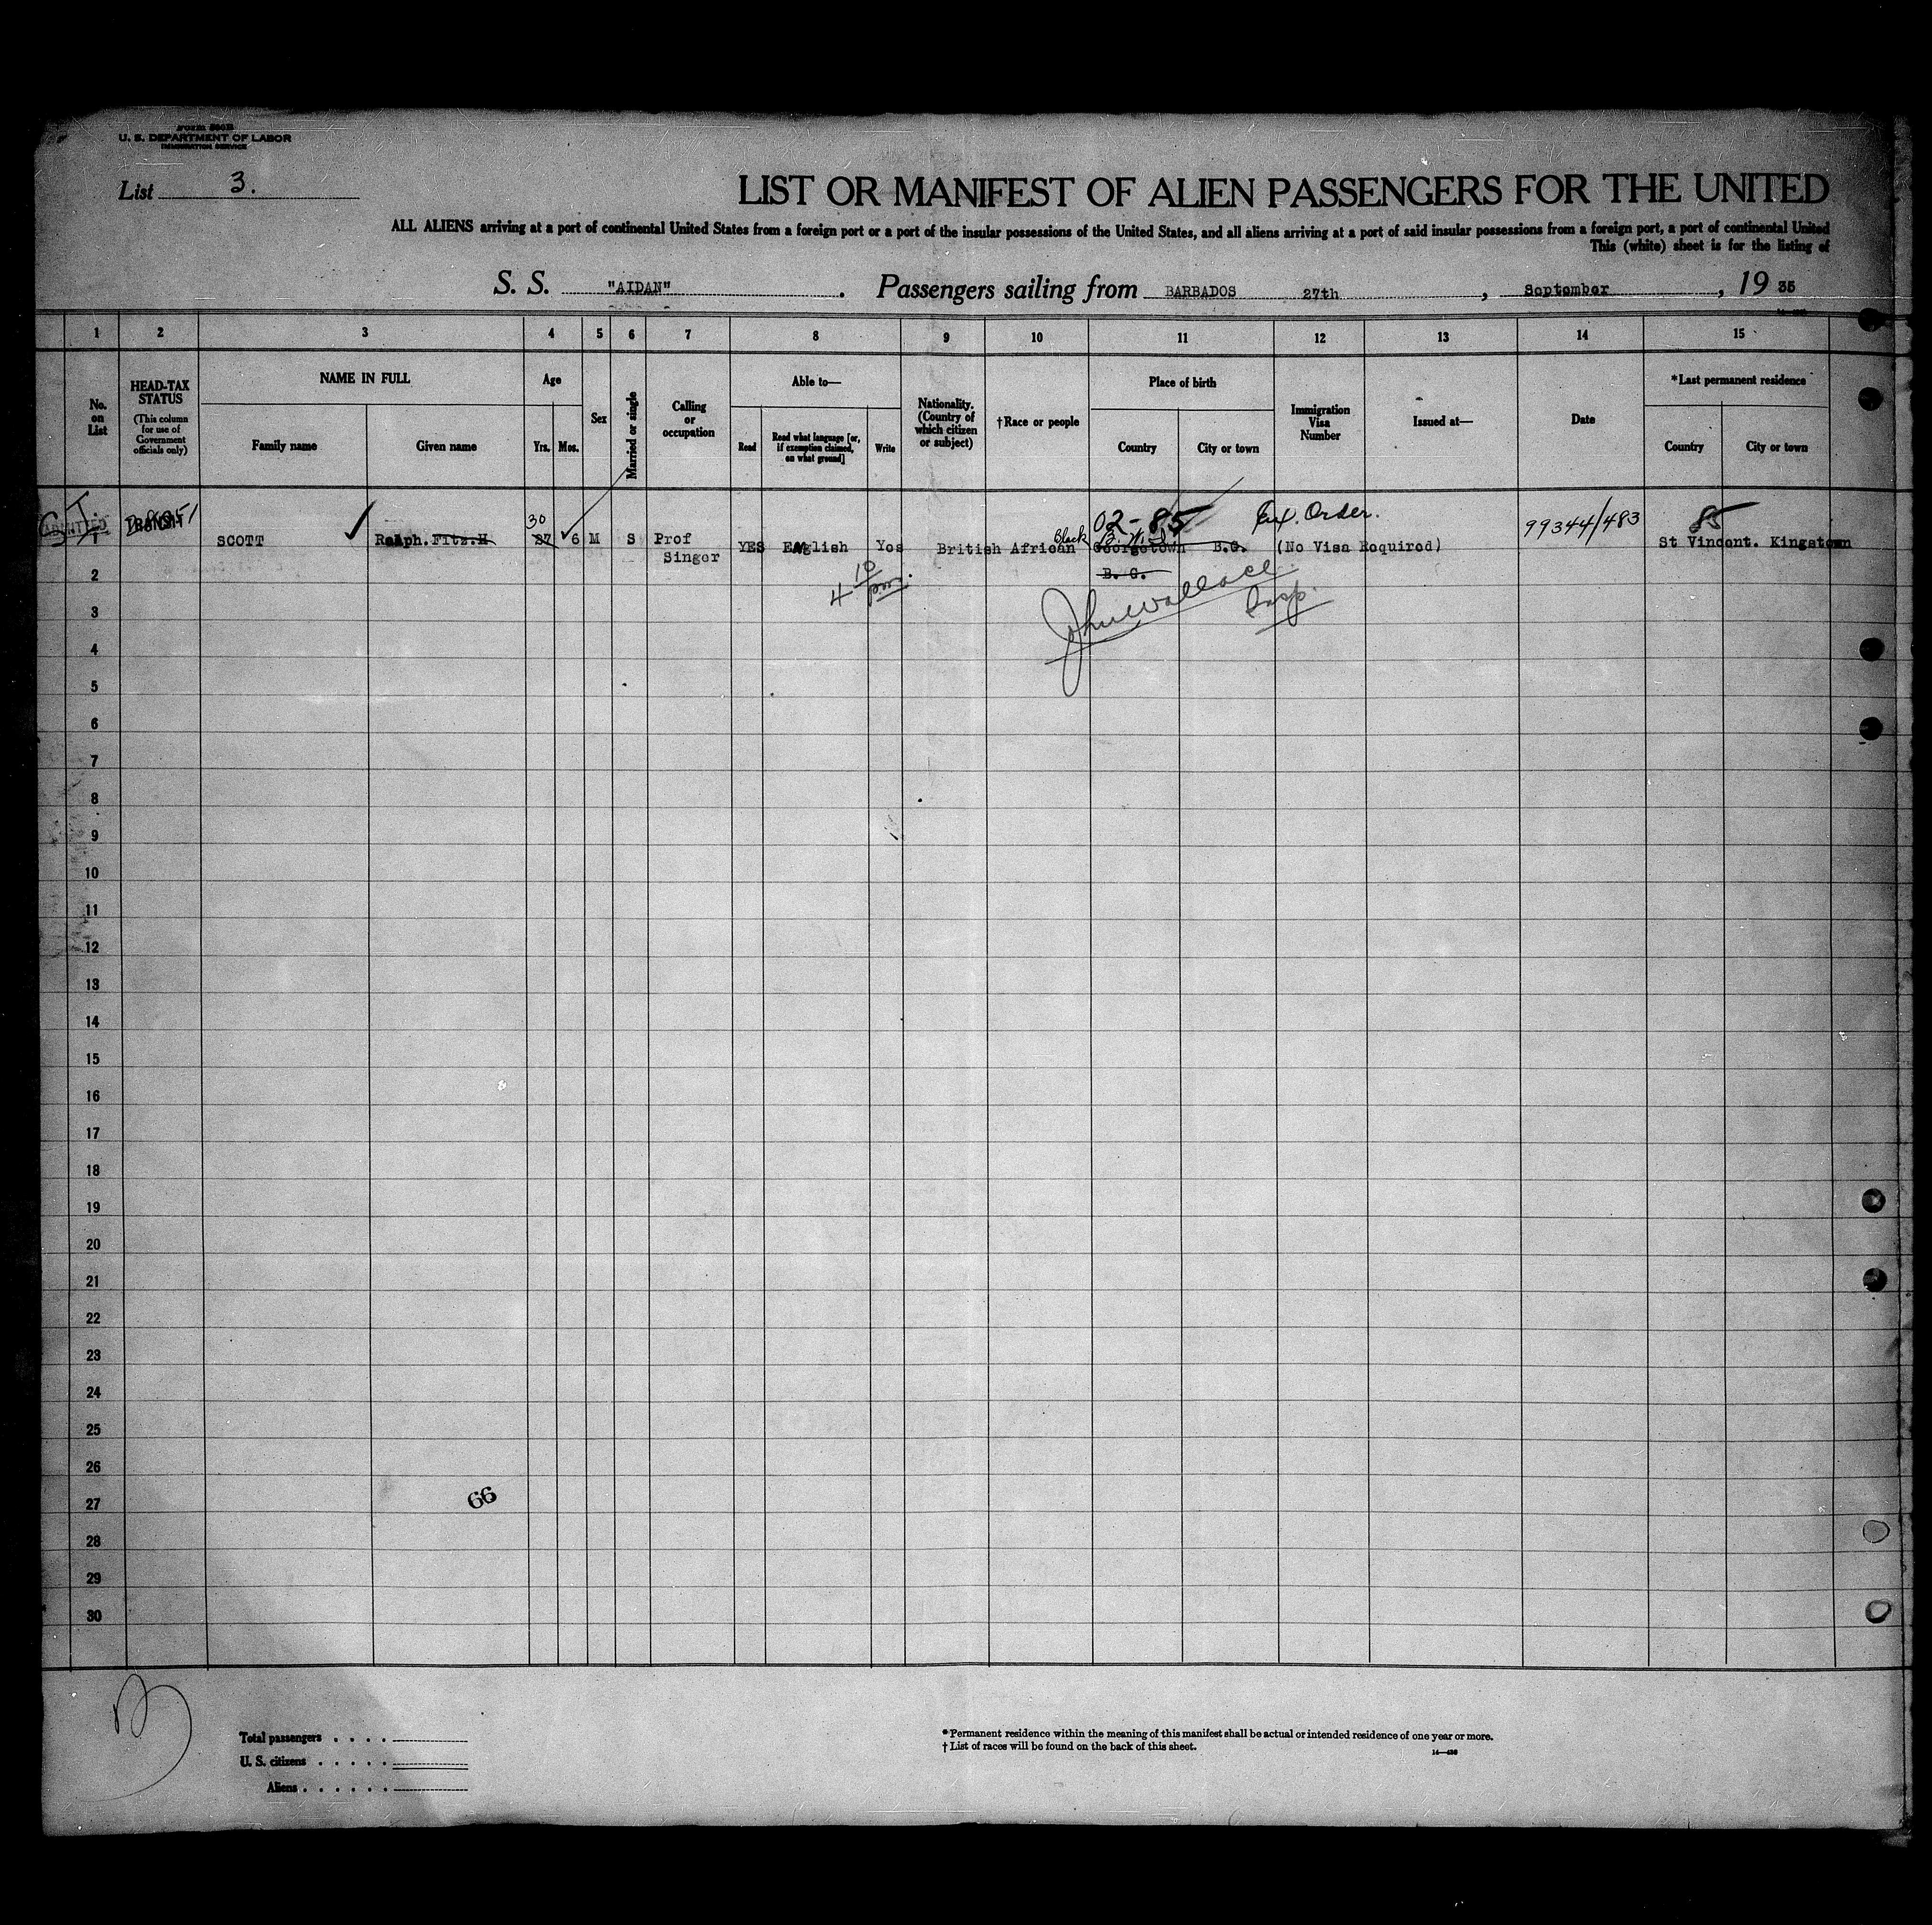 Form 500B
U. S. DEPARTMENT OF LABOR
IMMIGRATION SERVICE
List 3.
LIST OR MANIFEST OF ALIEN PASSENGERS FOR THE UNITED
ALL ALIENS arriving at a port of continental United States from a foreign port or a port of the insular possessions of the United States, and all aliens arriving at a port of said insular possessions from a foreign port, a port of continental United
This (white) sheet is for the listing of
S. S. "AIDAN". Passengers sailing from BARBADOS 27th, September, 19 35
1 2 3 4 5 6 7 8 9 10 11 12 13 14 15
No. on List
HEAD-TAX STATUS
(This column for use of Government officials only)
NAME IN FULL
Family name
Given name
Age
Yrs.
Mos.
Sex
Married or single
Calling or occupation
Able to—
Read
Read what language [or, if exemption claimed, on what ground]
Write
Nationality. (Country of which citizen or subject)
†Race or people
Place of birth
Country
City or town
Immigration Visa Number
Issued at—
Date
*Last permanent residence
Country
City or town
ADMITTED
1
TRANSIT
SCOTT
Ralph. Fitz.H
30
27
6
M
S
Prof
Singer
YES
English
Yes
British
African
Black
02-85
B.W.I.
Georgetown
B.G.
B. G.
Ex. Order.
(No Visa Required)
99344/483
85
St Vincent. Kingstown
4 10 pm.
John Wallace
Insp.
2
3
4
5
6
7
8
9
10
11
12
13
14
15
16
17
18
19
20
21
22
23
24
25
26
27
66
28
29
30
Total passengers . . . .
U. S. citizens . . . . .
Aliens . . . . . .
*Permanent residence within the meaning of this manifest shall be actual or intended residence of one year or more.
†List of races will be found on the back of this sheet.